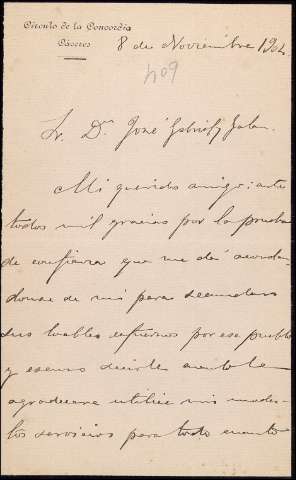 Círculo de la Concordia
Cáceres
8 de Noviembre 1904
604
Sr. Dn José Gabriel y Galan.
Mi querido amigo: ante
todos mil gracias por la prueba
de confianza que me dá acordan-
dose de mi para secundar
sus loables esfuerzos por ese pueblo
y escuso decirle cuanto le
agradecere utilice mis modes-
tos servicios para todo cuanto